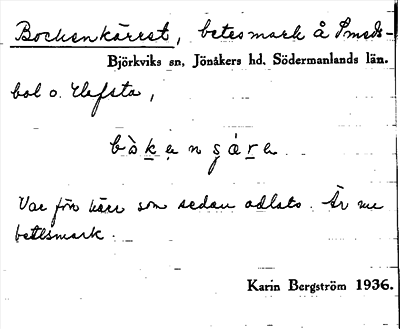 Bockenkärret, betesmark å Smeds-
Björkviks sn, Jönåkers hd, Södermanlands län.
bol o. Hafsta,
Var förr kärr som sedan odlats. Är nu
betesmark.
Karin Bergström 1936.